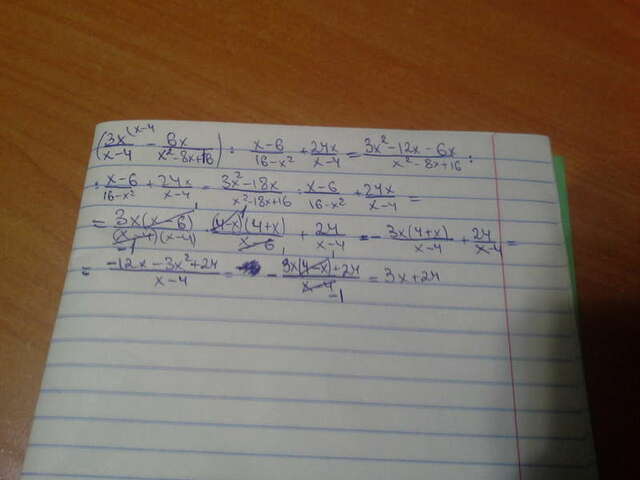 (3x^(x-4)/(x-4) - 6x/(x²-8x+16)) : (x-6)/(16-x²) + 24x/(x-4) = (3x²-12x-6x)/(x²-8x+16) :
: (x-6)/(16-x²) + 24x/(x-4) = (3x²-18x)/(x²-18x+16) : (x-6)/(16-x²) + 24x/(x-4) =
= 3x(x-6)/((x-4)(x-4)) · (4-x)(4+x)/(x-6) + 24/(x-4) = - 3x(4+x)/(x-4) + 24/(x-4) =
= (-12x-3x²+24)/(x-4) = - (3x(4-x)+24)/(x-4) = 3x+24